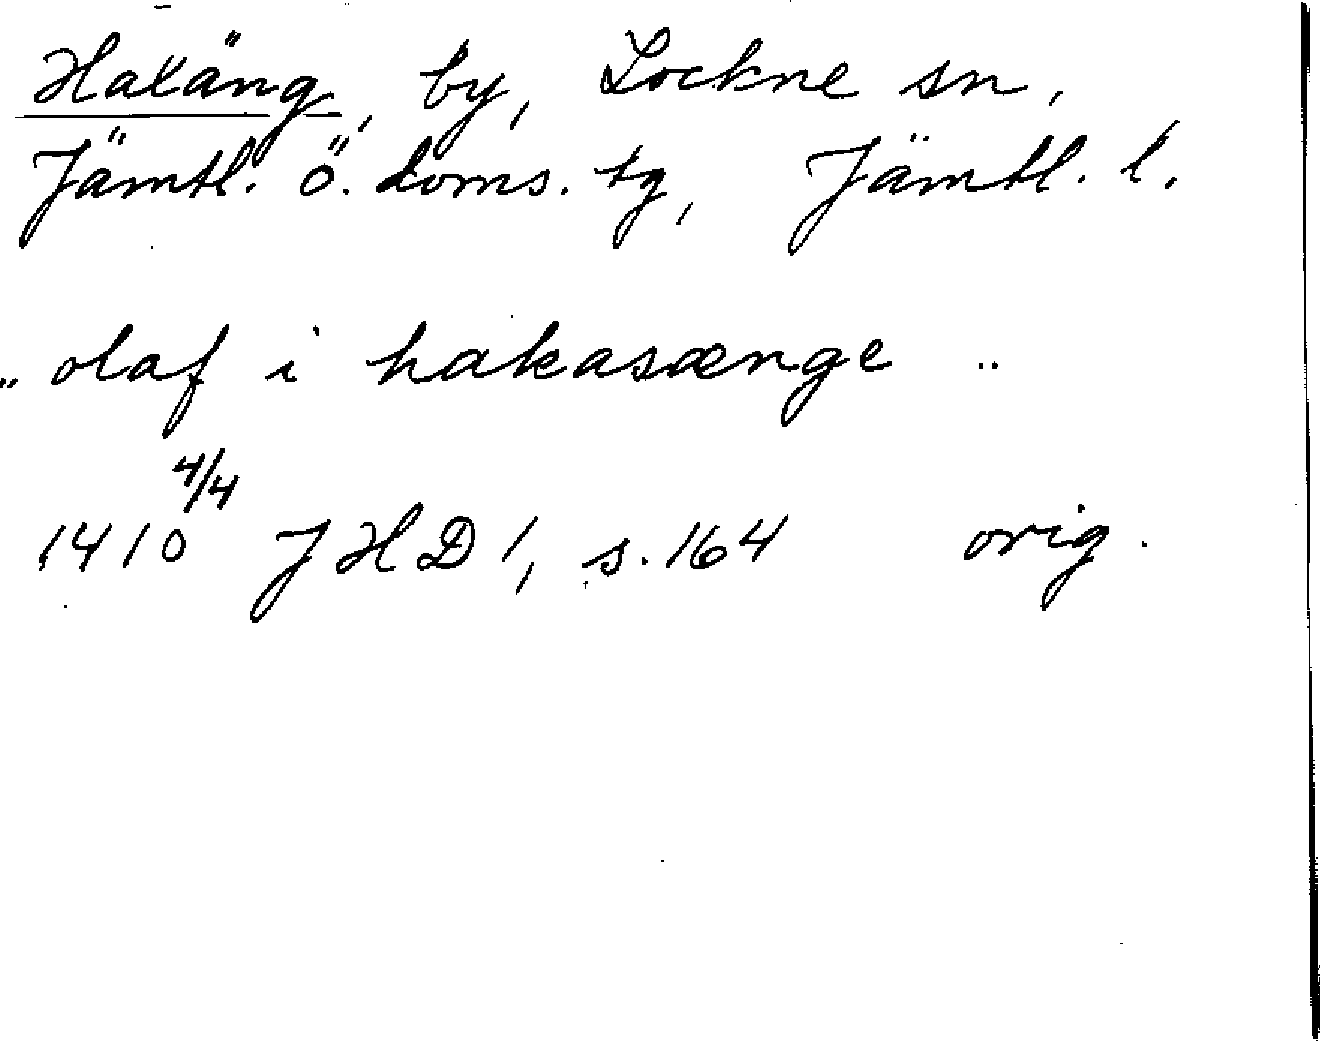 Haxäng, by, Lockne sn,
Jämtl. ö. doms. tg, Jämtl. l.
.. olaf i hakasænge ..
1410 4/4 JHD 1, s. 164 orig.